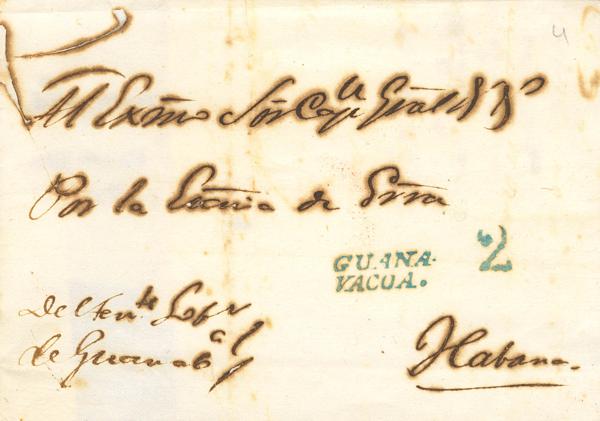 4
Al Exmo Sor Capn Gral &
Por la Essria de Grra
GUANA-
VACOA.
2
Del Tente Gobr
de Guanaba
Habana.